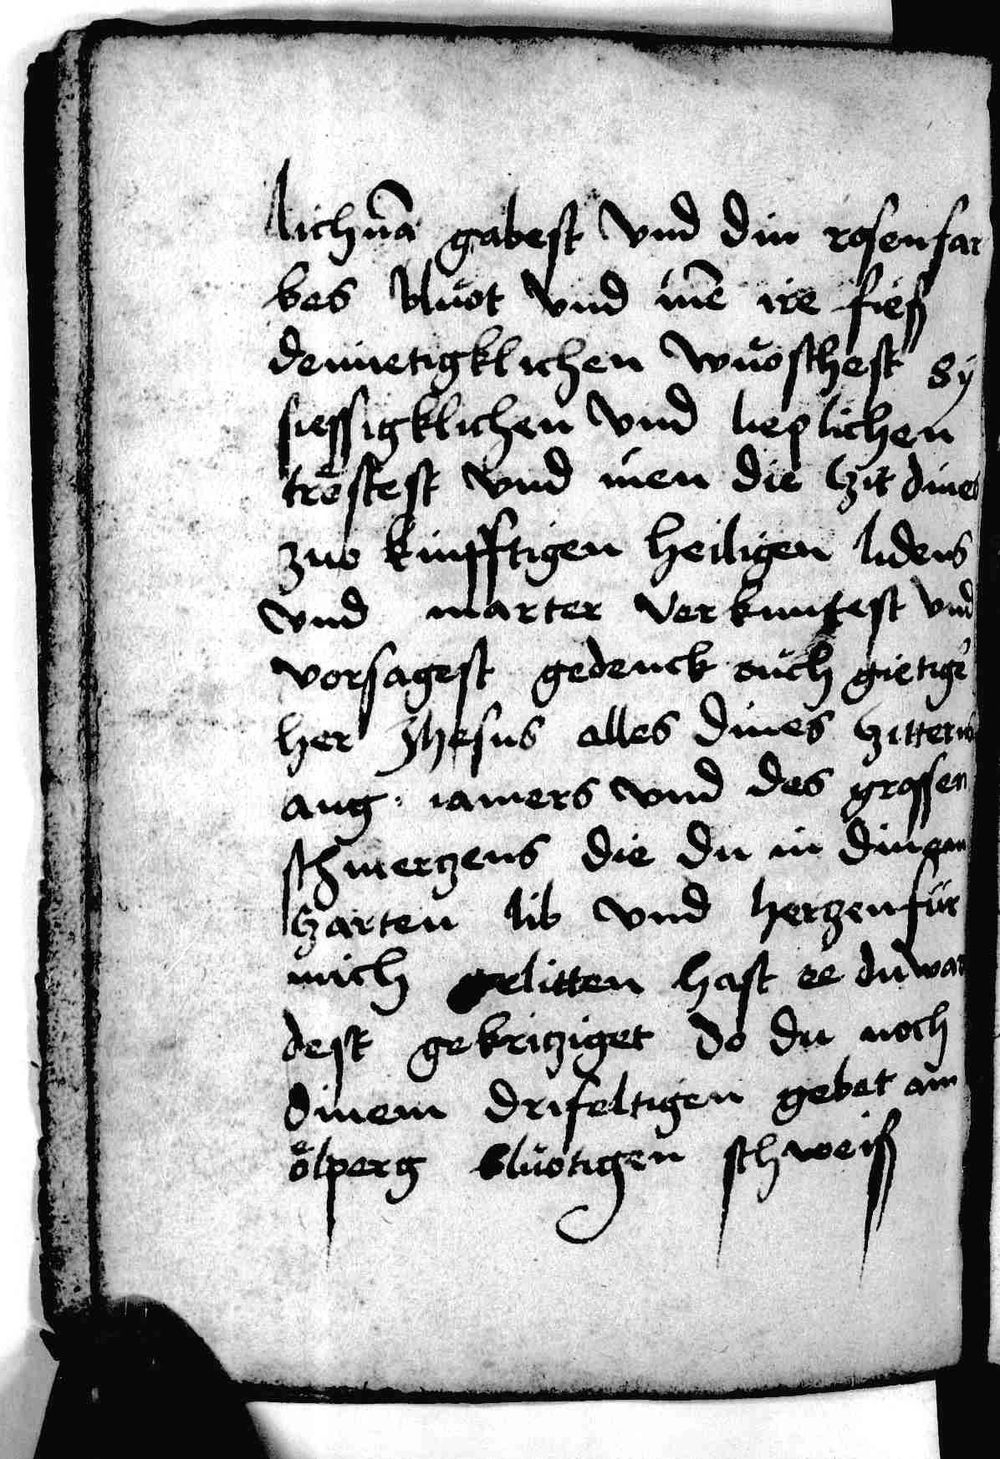 lichnā gabest vnd din rosenfar
bes bluͦot vnd inē ire fieß
demietigklichen wuͦoschest sy
siessigklichen vnd lieplichen
trēstest vnd inen die tzit dines
zuo kinfftigen heiligen lidens
vnd marter verkuntest vnd
vorsagest gedenck ouch gietigˀ
her Jhesus alles dines tzitterns
ang iamers vnd des grossen
schmertzens die du in dinem
tzarten lib vnd hertzen für
mich gelitten hast ee du war
dest gekritziget do du noch
dinem drifeltigen gebet am
oͤlperg bluͦotigen schweiß